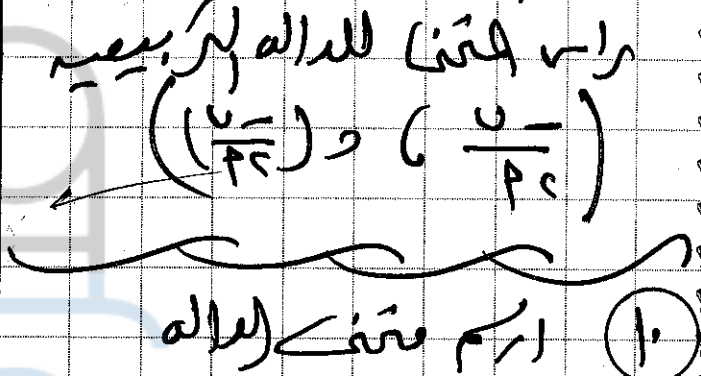 راس منحنى للدالة التربيعية
( -ب / ٢أ ، د( -ب / ٢أ ) )
١٠ ارسم منحنى الدالة